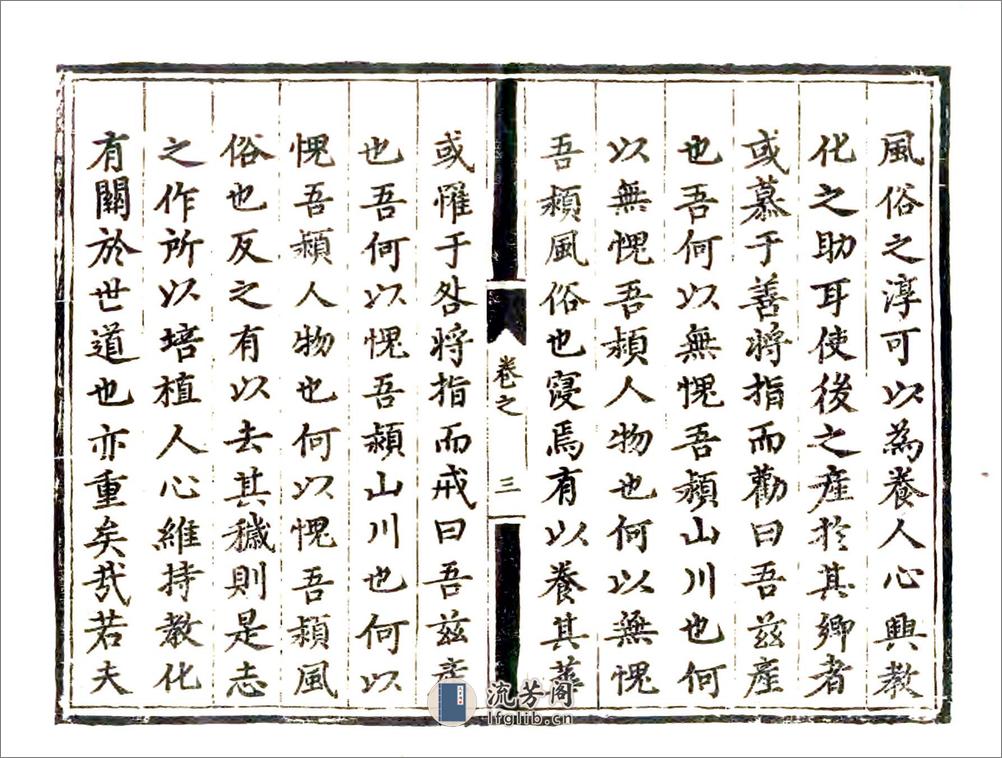 風俗之淳可以為養人心興教
化之助耳使後之產於其鄉者
或慕于善將指而勸曰吾茲產
也吾何以無愧吾潁山川也何
以無愧吾潁人物也何以無愧
吾潁風俗也寖焉有以養其
卷之 三
或罹于咎將指而戒曰吾茲產
也吾何以愧吾潁山川也何以
愧吾潁人物也何以愧吾潁風
俗也反之有以去其穢則是志
之作所以培植人心維持教化
有關於世道也亦重矣哉若夫
流芳阁
lfglib.cn